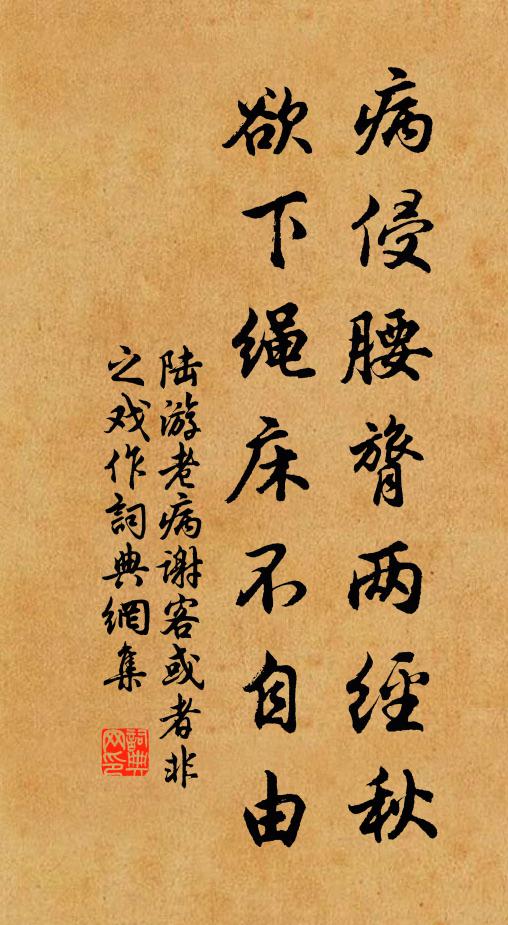 病侵腰膂两经秋
欲下绳床不自由
陆游老病谢客或者非
之戏作詞典網集
詞典
网印